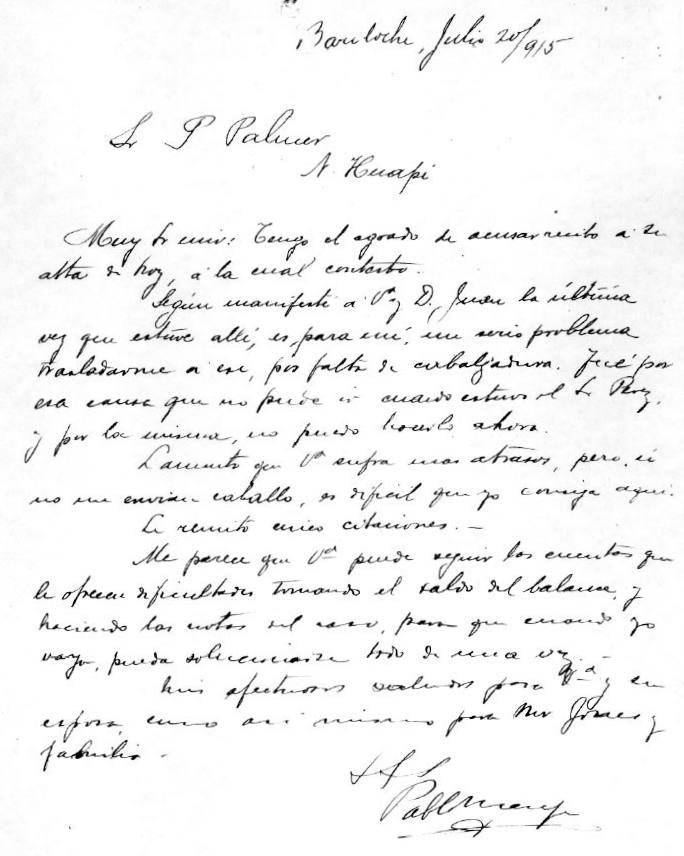 Bariloche, Julio 20/915
Sr P Palmer
N. Huapi
Muy Sr mio: Tengo el agrado de acusar recibo a su
atta de hoy, a la cual contesto.
Según manifesté a Vd y D. Juan la última
vez que estuve allí, es para mí, un serio problema
trasladarme a esa, por falta de cabalgadura. Fué por
esa causa que no pude ir cuando estuvo el Sr Perez,
y por la misma, no puedo hacerlo ahora.
Lamento que Vd sufra mas atrasos, pero, si
no me envian caballo, es dificil que yo consiga aqui.
Le remito cinco citaciones. —
Me parece que Vd puede seguir las cuentas que
le ofrecen dificultades tomando el saldo del balance, y
haciendo las notas del caso, para que cuando yo
vaya, pueda solucionarse todo de una vez.
Mis afectuosos saludos para Vd y su
esposa, como asi mismo para Mr Jones y
familia.
S S S